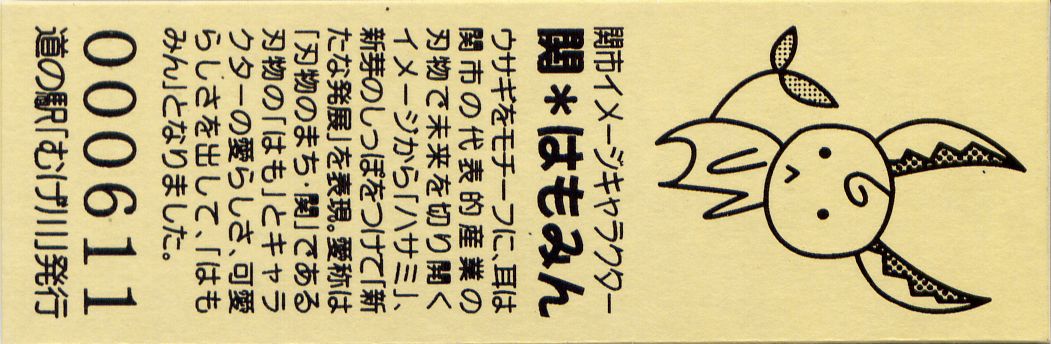 関市イメージキャラクター
関＊はもみん
ウサギをモチーフに、耳は
関市の代表的産業の
刃物で未来を切り開く
イメージから「ハサミ」、
新芽のしっぽをつけて「新
たな発展」を表現。愛称は
「刃物のまち・関」である
刃物の「はも」とキャラ
クターの愛らしさ、可愛
らしさを出して、「はも
みん」となりました。
000611
道の駅「むげ川」発行